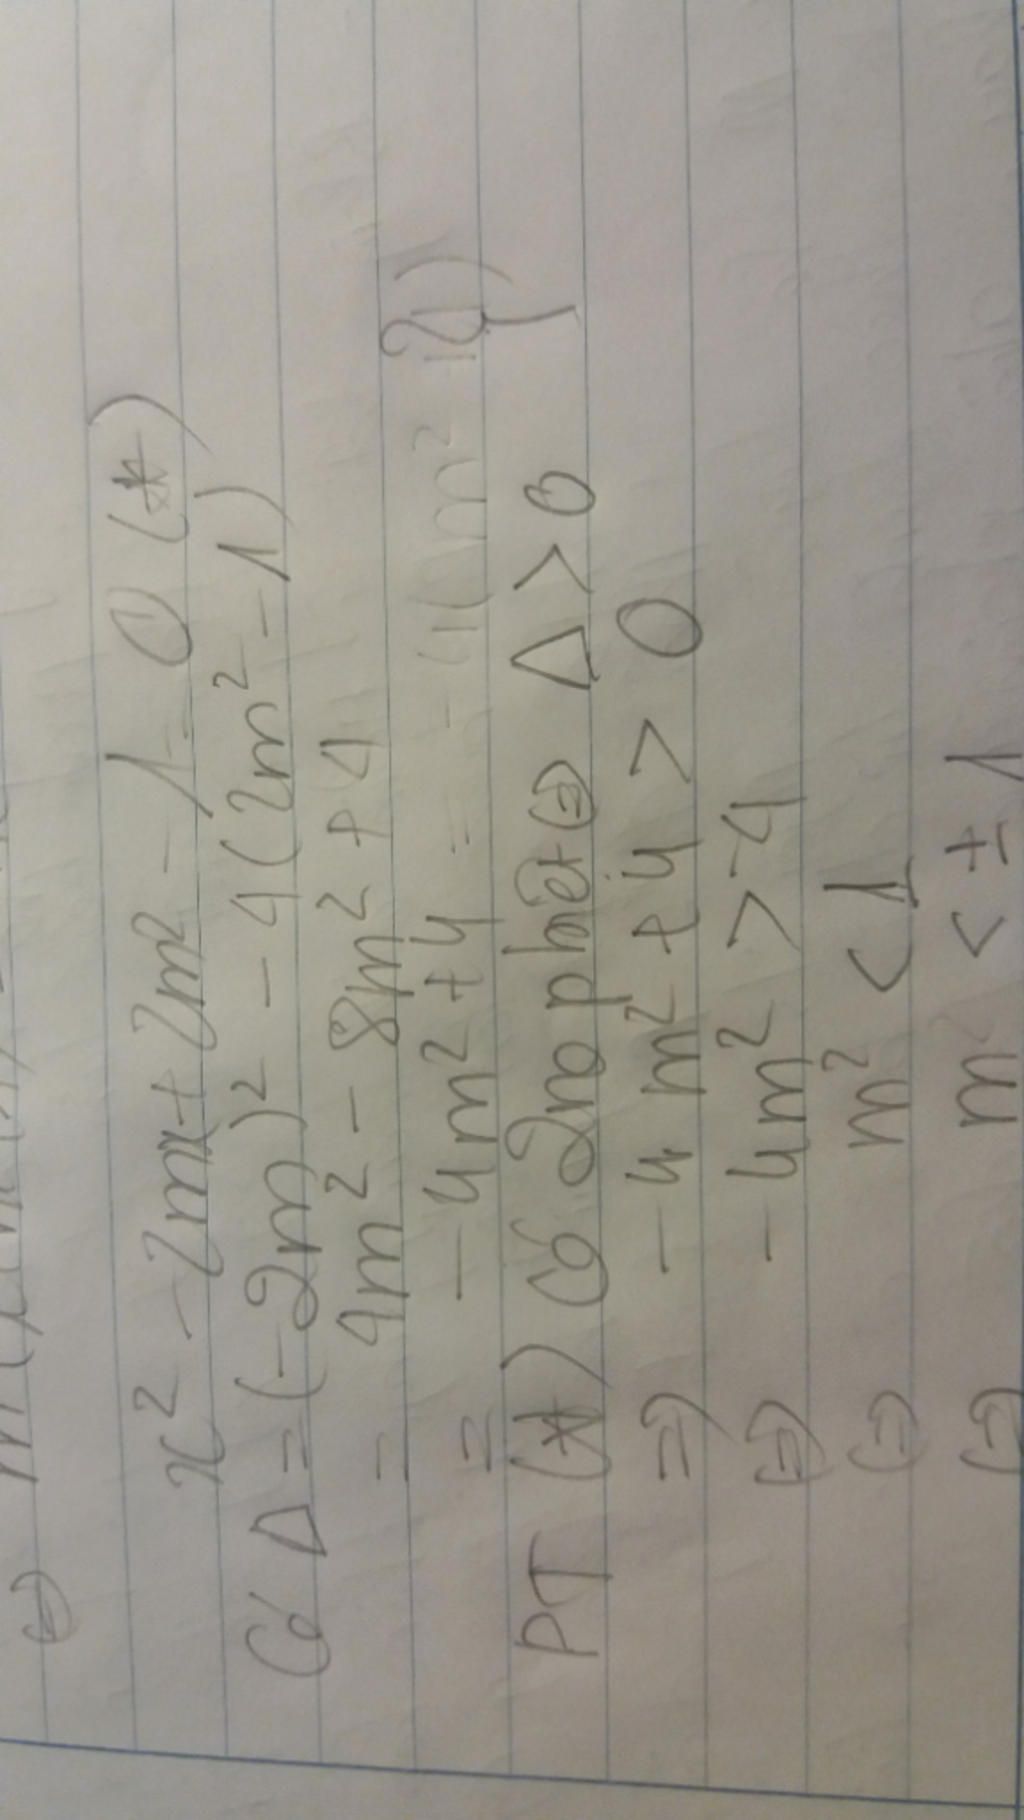 x² - 2mx + 2m² - 1 = 0 (*)
Có Δ = (-2m)² - 4(2m² - 1)
= 4m² - 8m² + 4
= -4m² + 4
PT (*) Có 2no pbiệt ⇔ Δ > 0
⇒ -4m² + 4 > 0
⇔ -4m² > -4
⇔ m² < 1
⇔ m < ±1